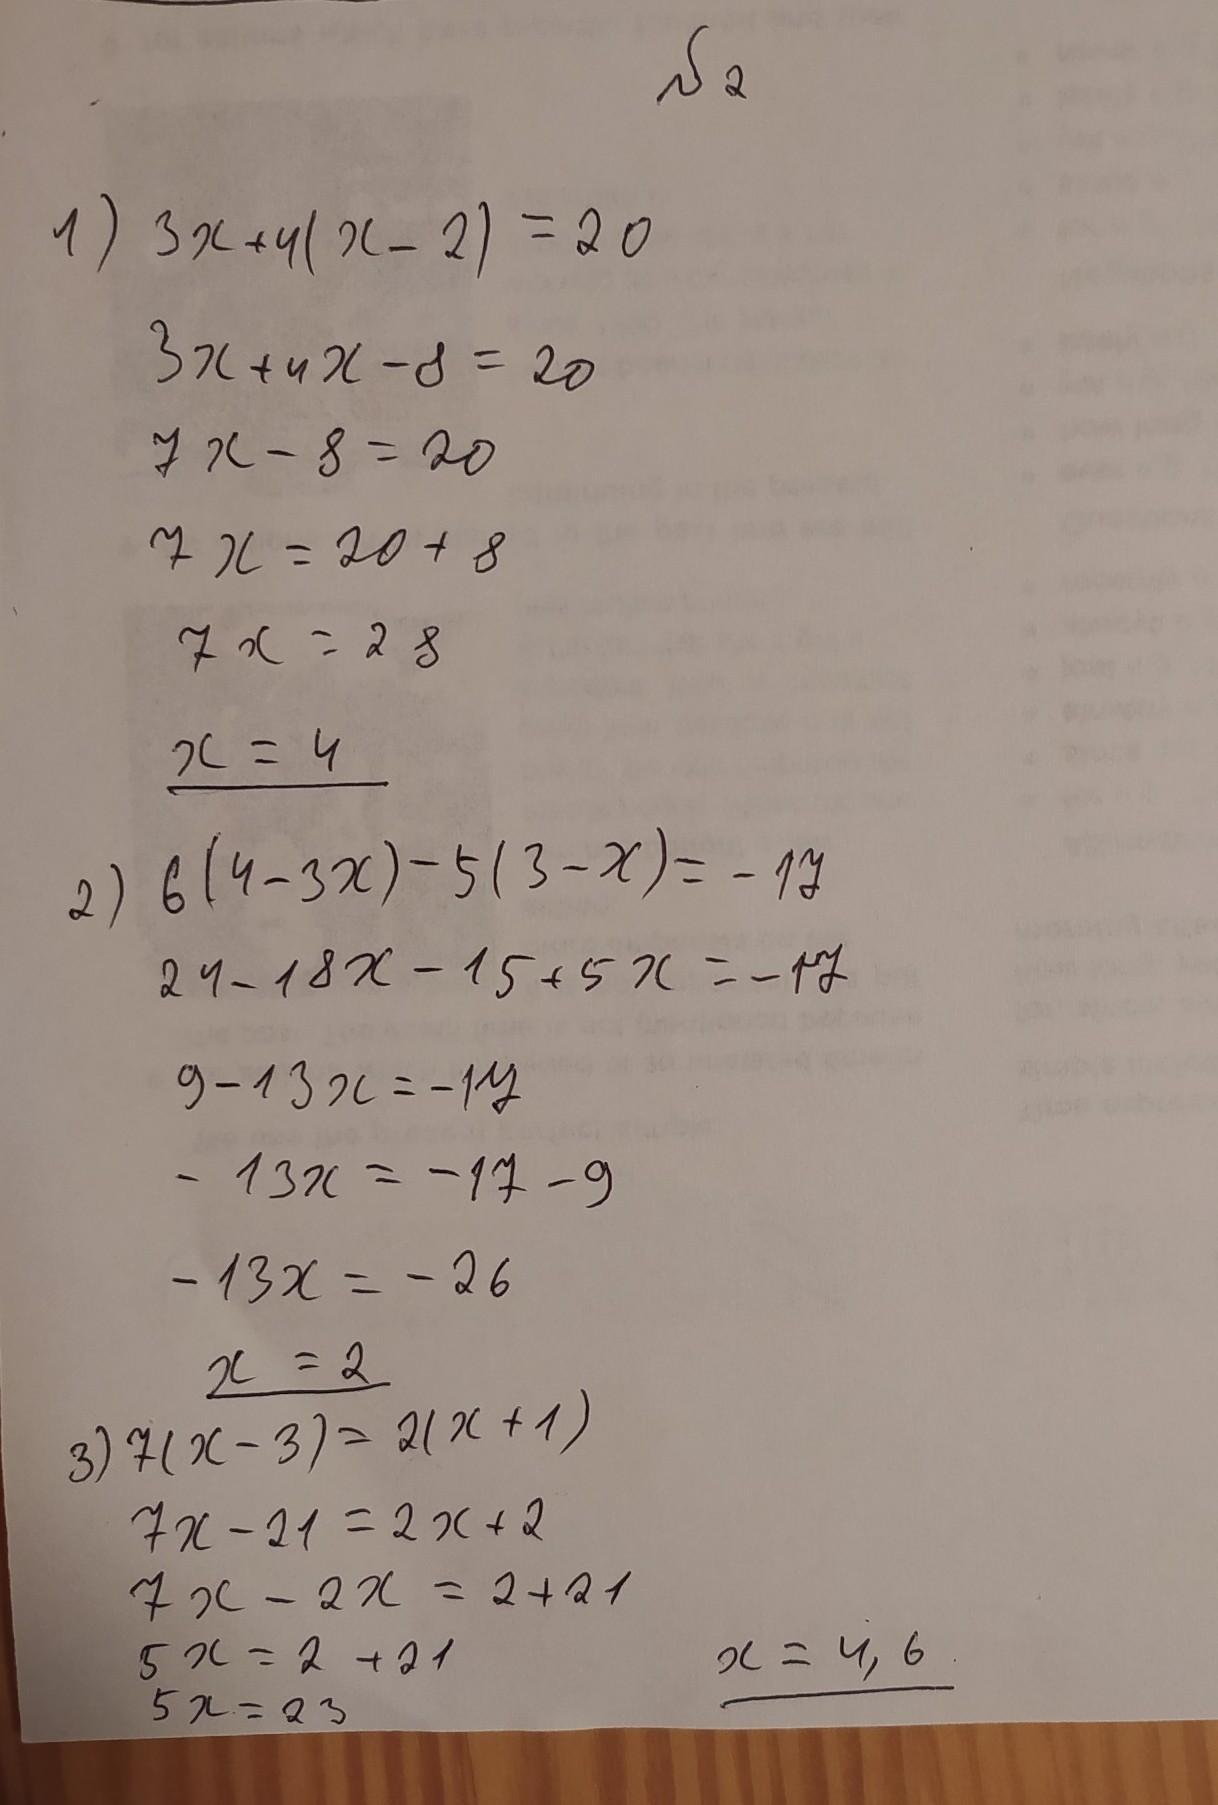 №2
1) 3x+4(x-2)=20
3x+4x-8=20
7x-8=20
7x=20+8
7x=28
x=4
2) 6(4-3x)-5(3-x)=-17
24-18x-15+5x=-17
9-13x=-17
-13x=-17-9
-13x=-26
x=2
3) 7(x-3)=2(x+1)
7x-21=2x+2
7x-2x=2+21
5x=2+21
5x=23
x=4,6